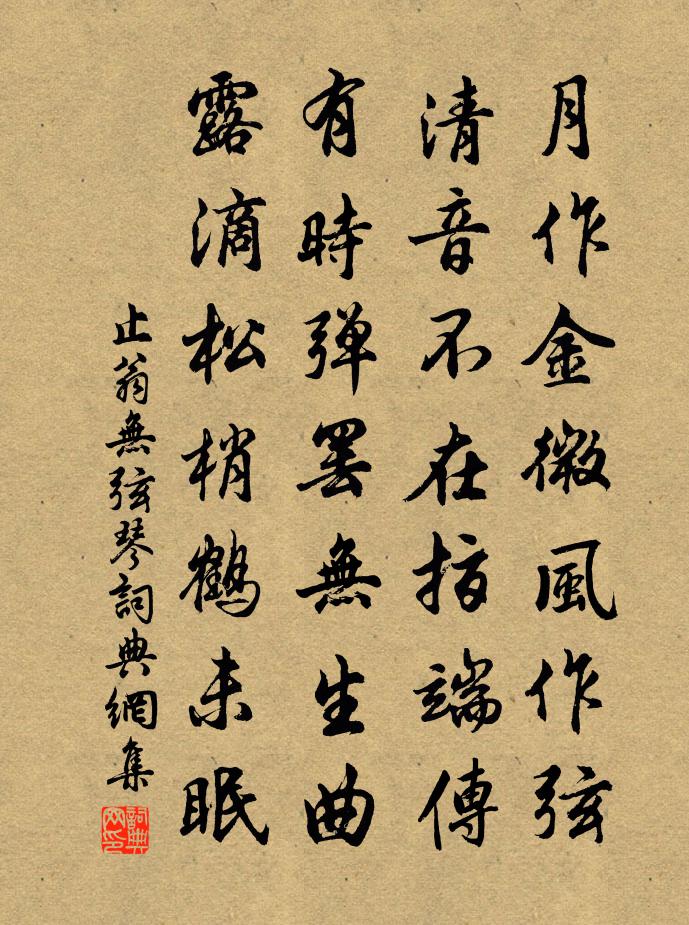 月作金徽風作弦
清音不在指端傳
有時弹罢無生曲
露滴松梢鶴未眠
止翁無弦琴詞典網集
詞典网印